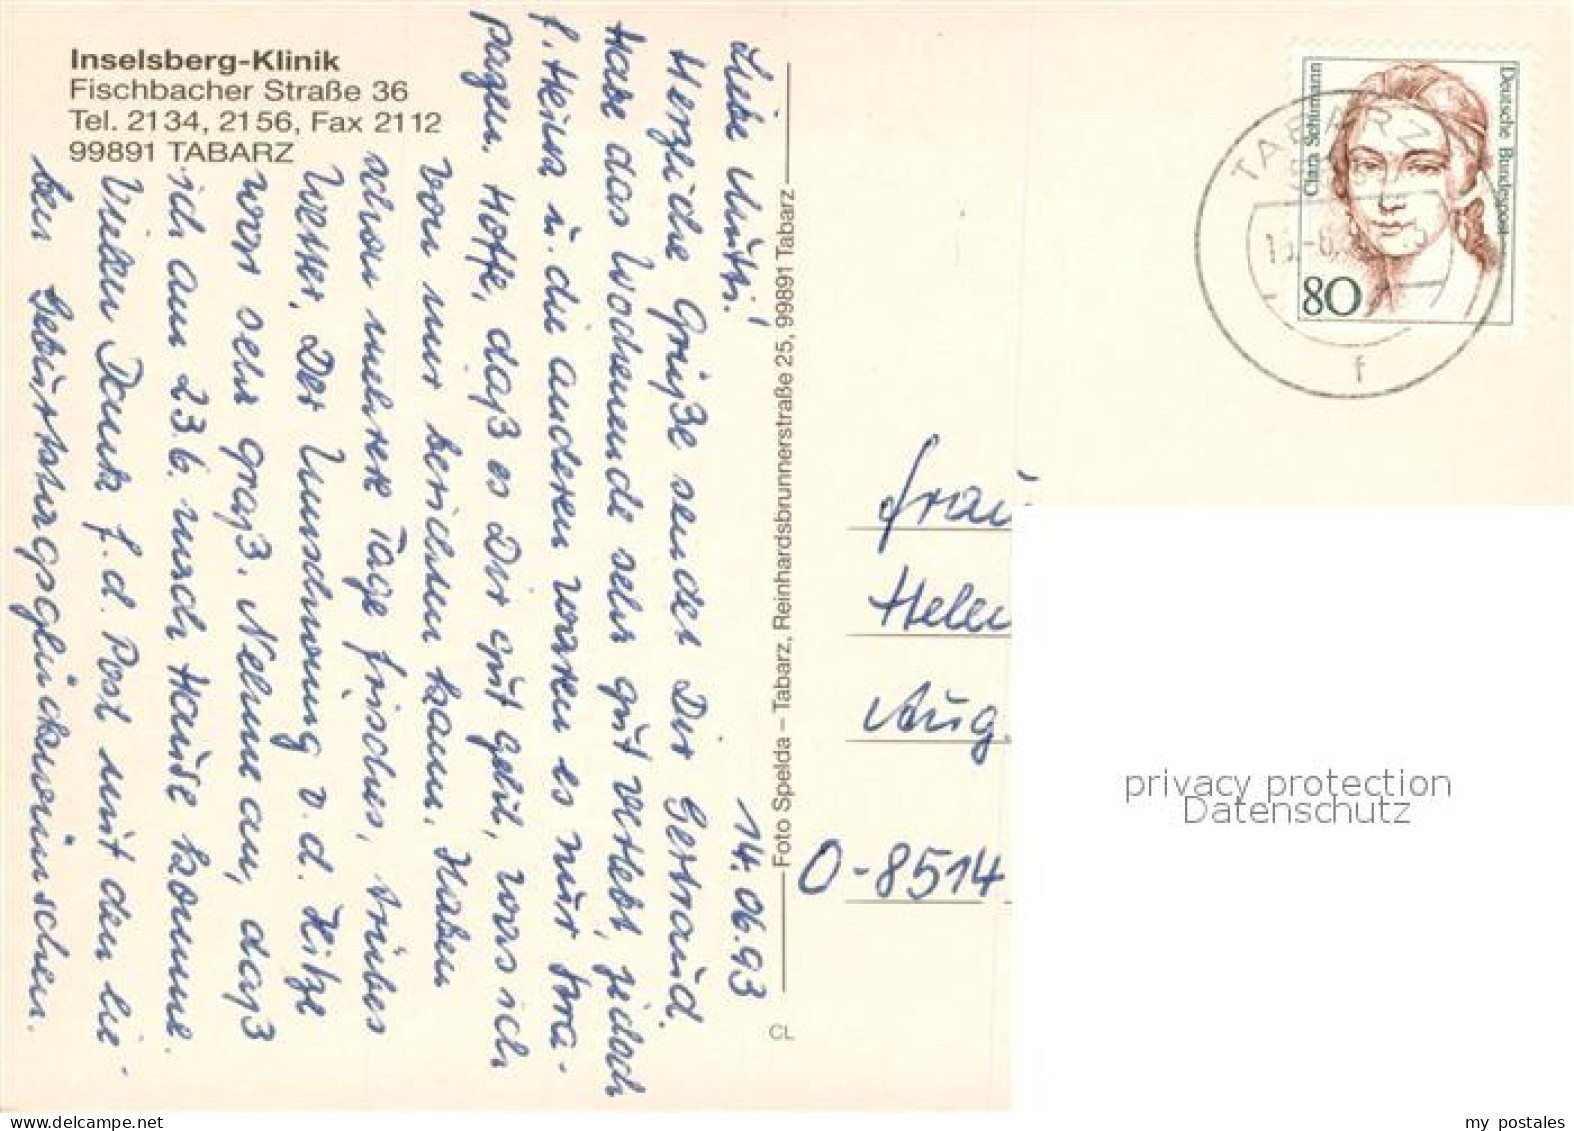 Inselsberg-Klinik
Fischbacher Straße 36
Tel. 2134, 2156, Fax 2112
99891 TABARZ
14.06.93
Liebe Mutti!
Herzliche Grüße sendet Dir Gertraud.
Habe das Wochenende sehr gut verlebt, jedoch
f. Heinz u. die anderen waren es nur Stra-
pazen. Hoffe, daß es Dir gut geht, was ich
von mir berichten kann. Haben
schon mehrere Tage frisches, trübes
Wetter. Der Umschwung v. d. Hitze
war sehr groß. Nehme an, daß
ich am 23.6. nach Hause komme.
Vielen Dank f. d. Post mit den lie-
ben Geburtstagsglückwünschen.
Foto Spelda – Tabarz, Reinhardsbrunnerstraße 25, 99891 Tabarz
CL
Clara Schumann
Deutsche Bundespost
80
TABARZ
f
Frau
Helen
Aug.
O-8514
privacy protection
Datenschutz
www.delcampe.net
my_postales